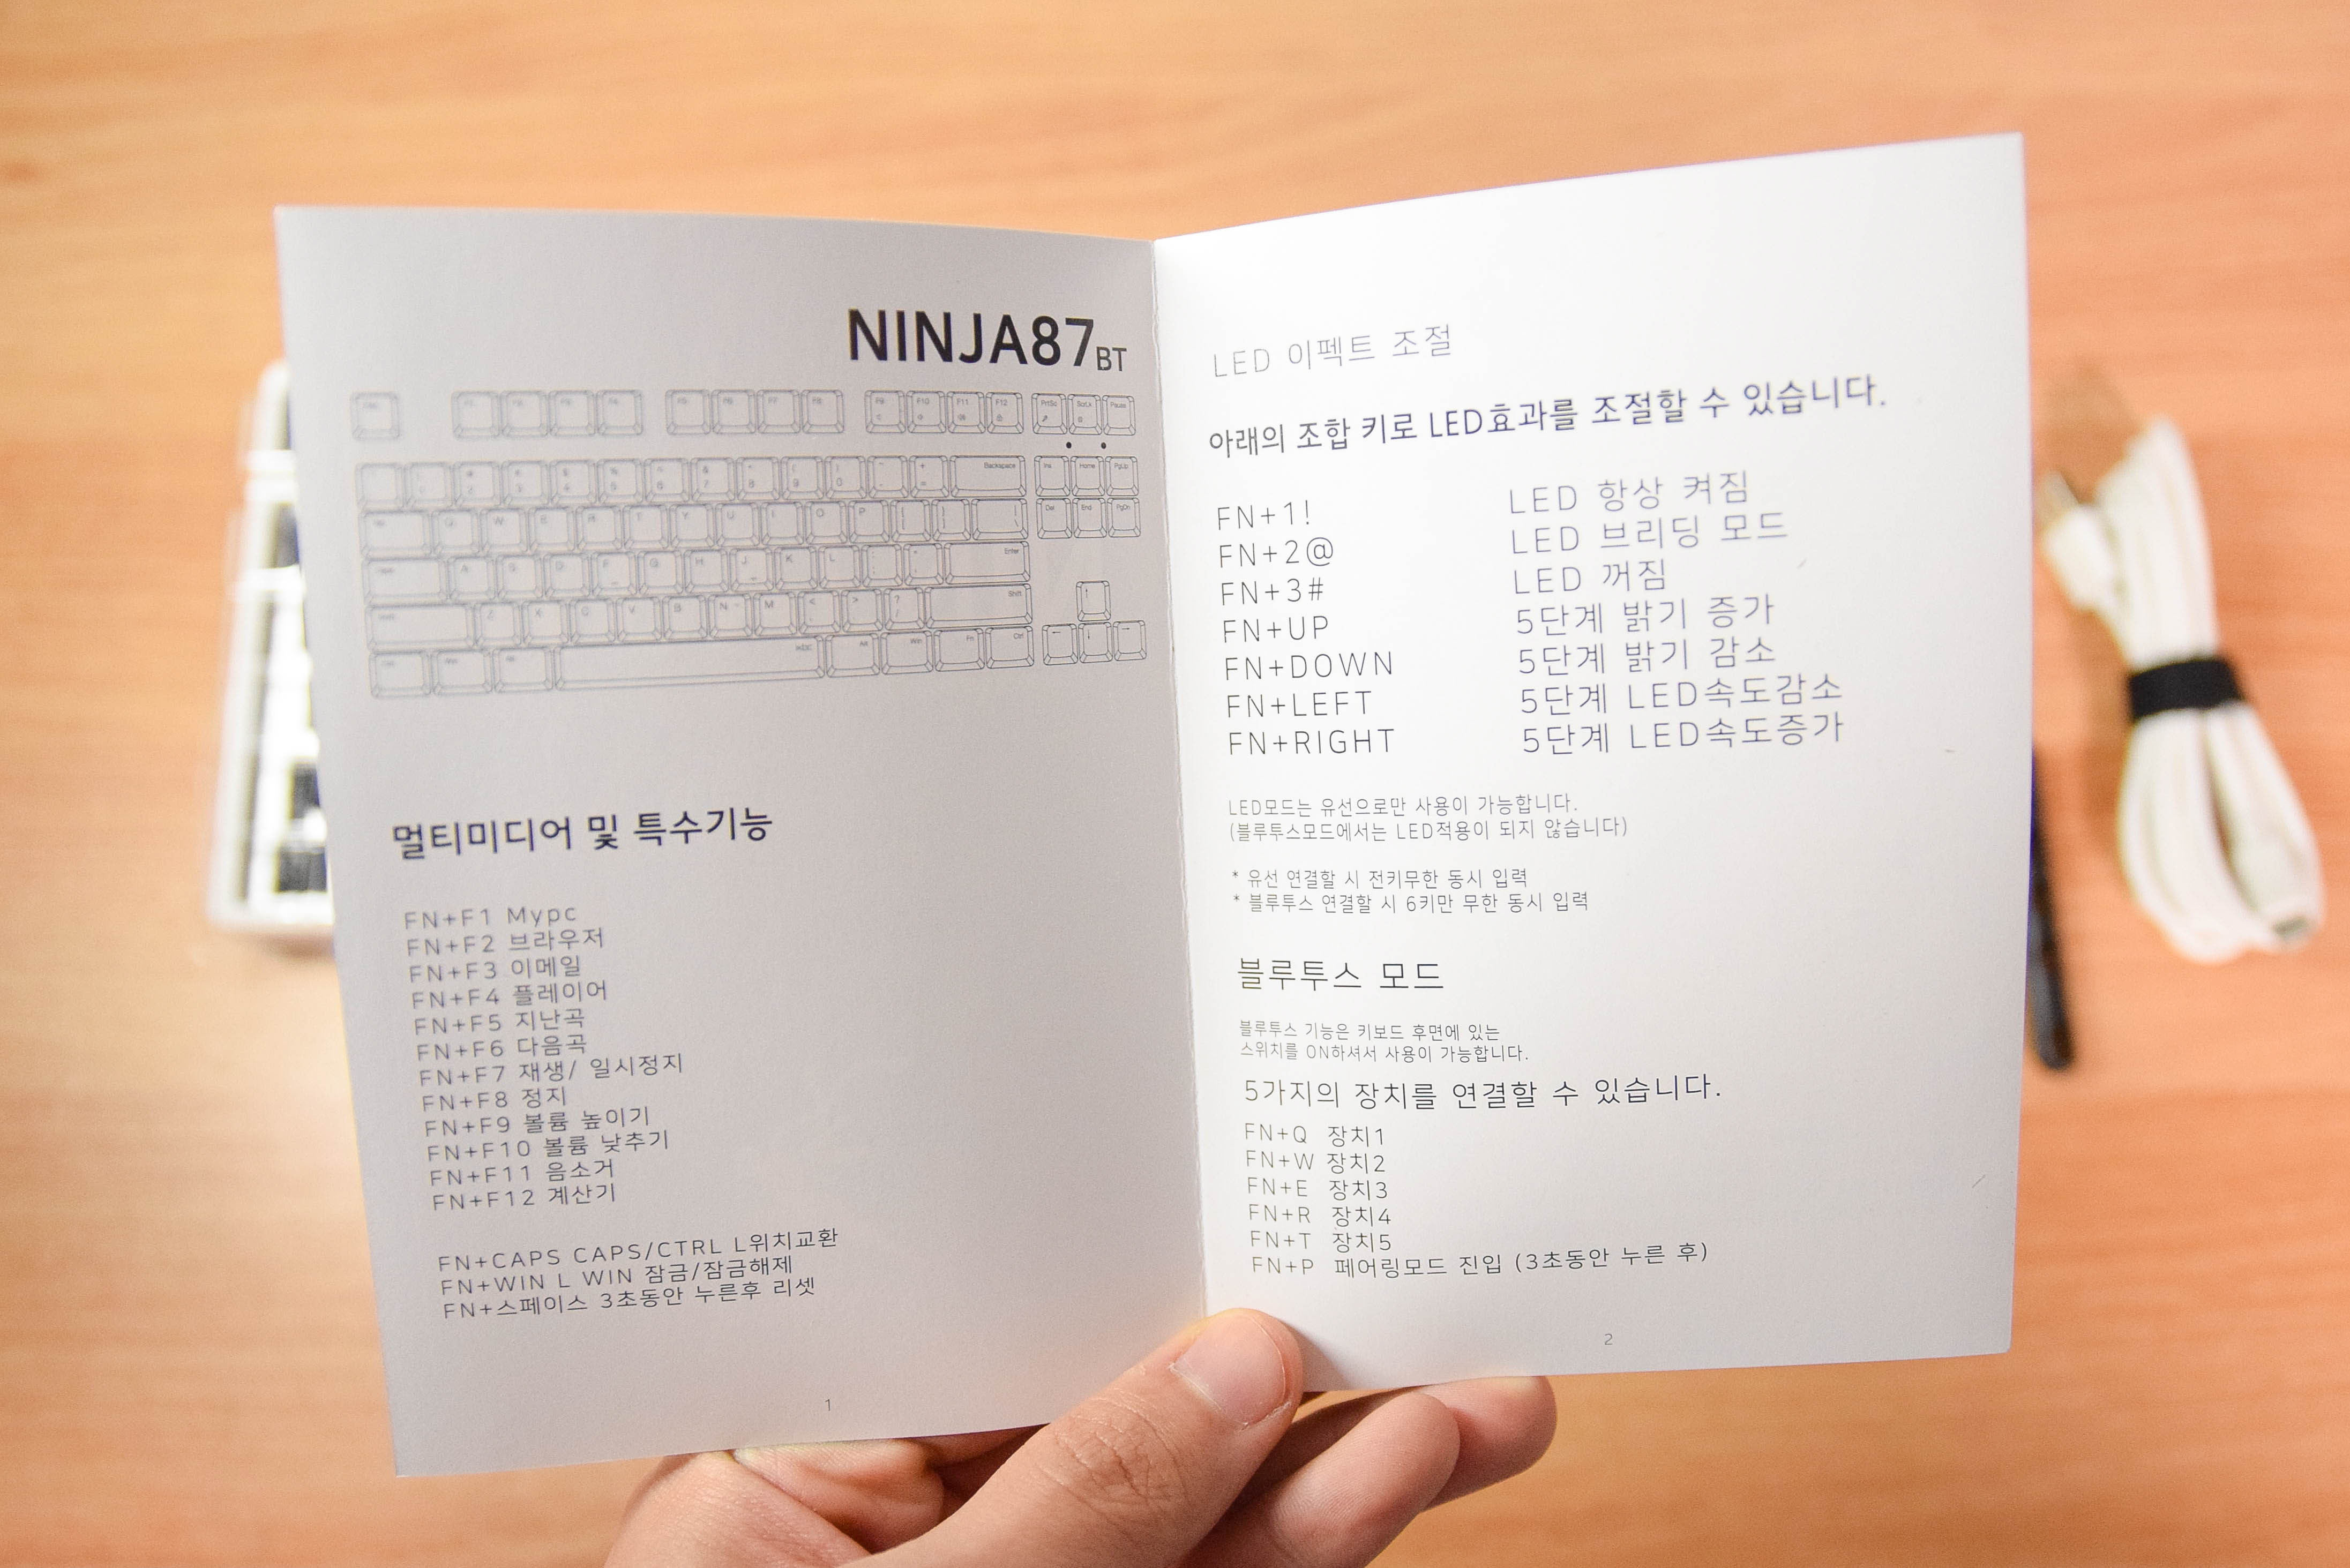 NINJA87 BT
PrtSc ScrLk Pause
F10 F11 F12
Backspace
Ins Home PgUp
Q W E R T Y U I O P
Del End PgDn
A S D F G H J K L
Enter
Z X C V B N M
Shift
Alt Win Fn Ctrl
멀티미디어 및 특수기능
FN+F1 Mypc
FN+F2 브라우저
FN+F3 이메일
FN+F4 플레이어
FN+F5 지난곡
FN+F6 다음곡
FN+F7 재생/ 일시정지
FN+F8 정지
FN+F9 볼륨 높이기
FN+F10 볼륨 낮추기
FN+F11 음소거
FN+F12 계산기
FN+CAPS CAPS/CTRL L위치교환
FN+WIN L WIN 잠금/잠금해제
FN+스페이스 3초동안 누른후 리셋
1
LED 이펙트 조절
아래의 조합 키로 LED효과를 조절할 수 있습니다.
FN+1! LED 항상 켜짐
FN+2@ LED 브리딩 모드
FN+3# LED 꺼짐
FN+UP 5단계 밝기 증가
FN+DOWN 5단계 밝기 감소
FN+LEFT 5단계 LED속도감소
FN+RIGHT 5단계 LED속도증가
LED모드는 유선으로만 사용이 가능합니다.
(블루투스모드에서는 LED적용이 되지 않습니다)
* 유선 연결할 시 전키무한 동시 입력
* 블루투스 연결할 시 6키만 무한 동시 입력
블루투스 모드
블루투스 기능은 키보드 후면에 있는
스위치를 ON하셔서 사용이 가능합니다.
5가지의 장치를 연결할 수 있습니다.
FN+Q 장치1
FN+W 장치2
FN+E 장치3
FN+R 장치4
FN+T 장치5
FN+P 페어링모드 진입 (3초동안 누른 후)
2